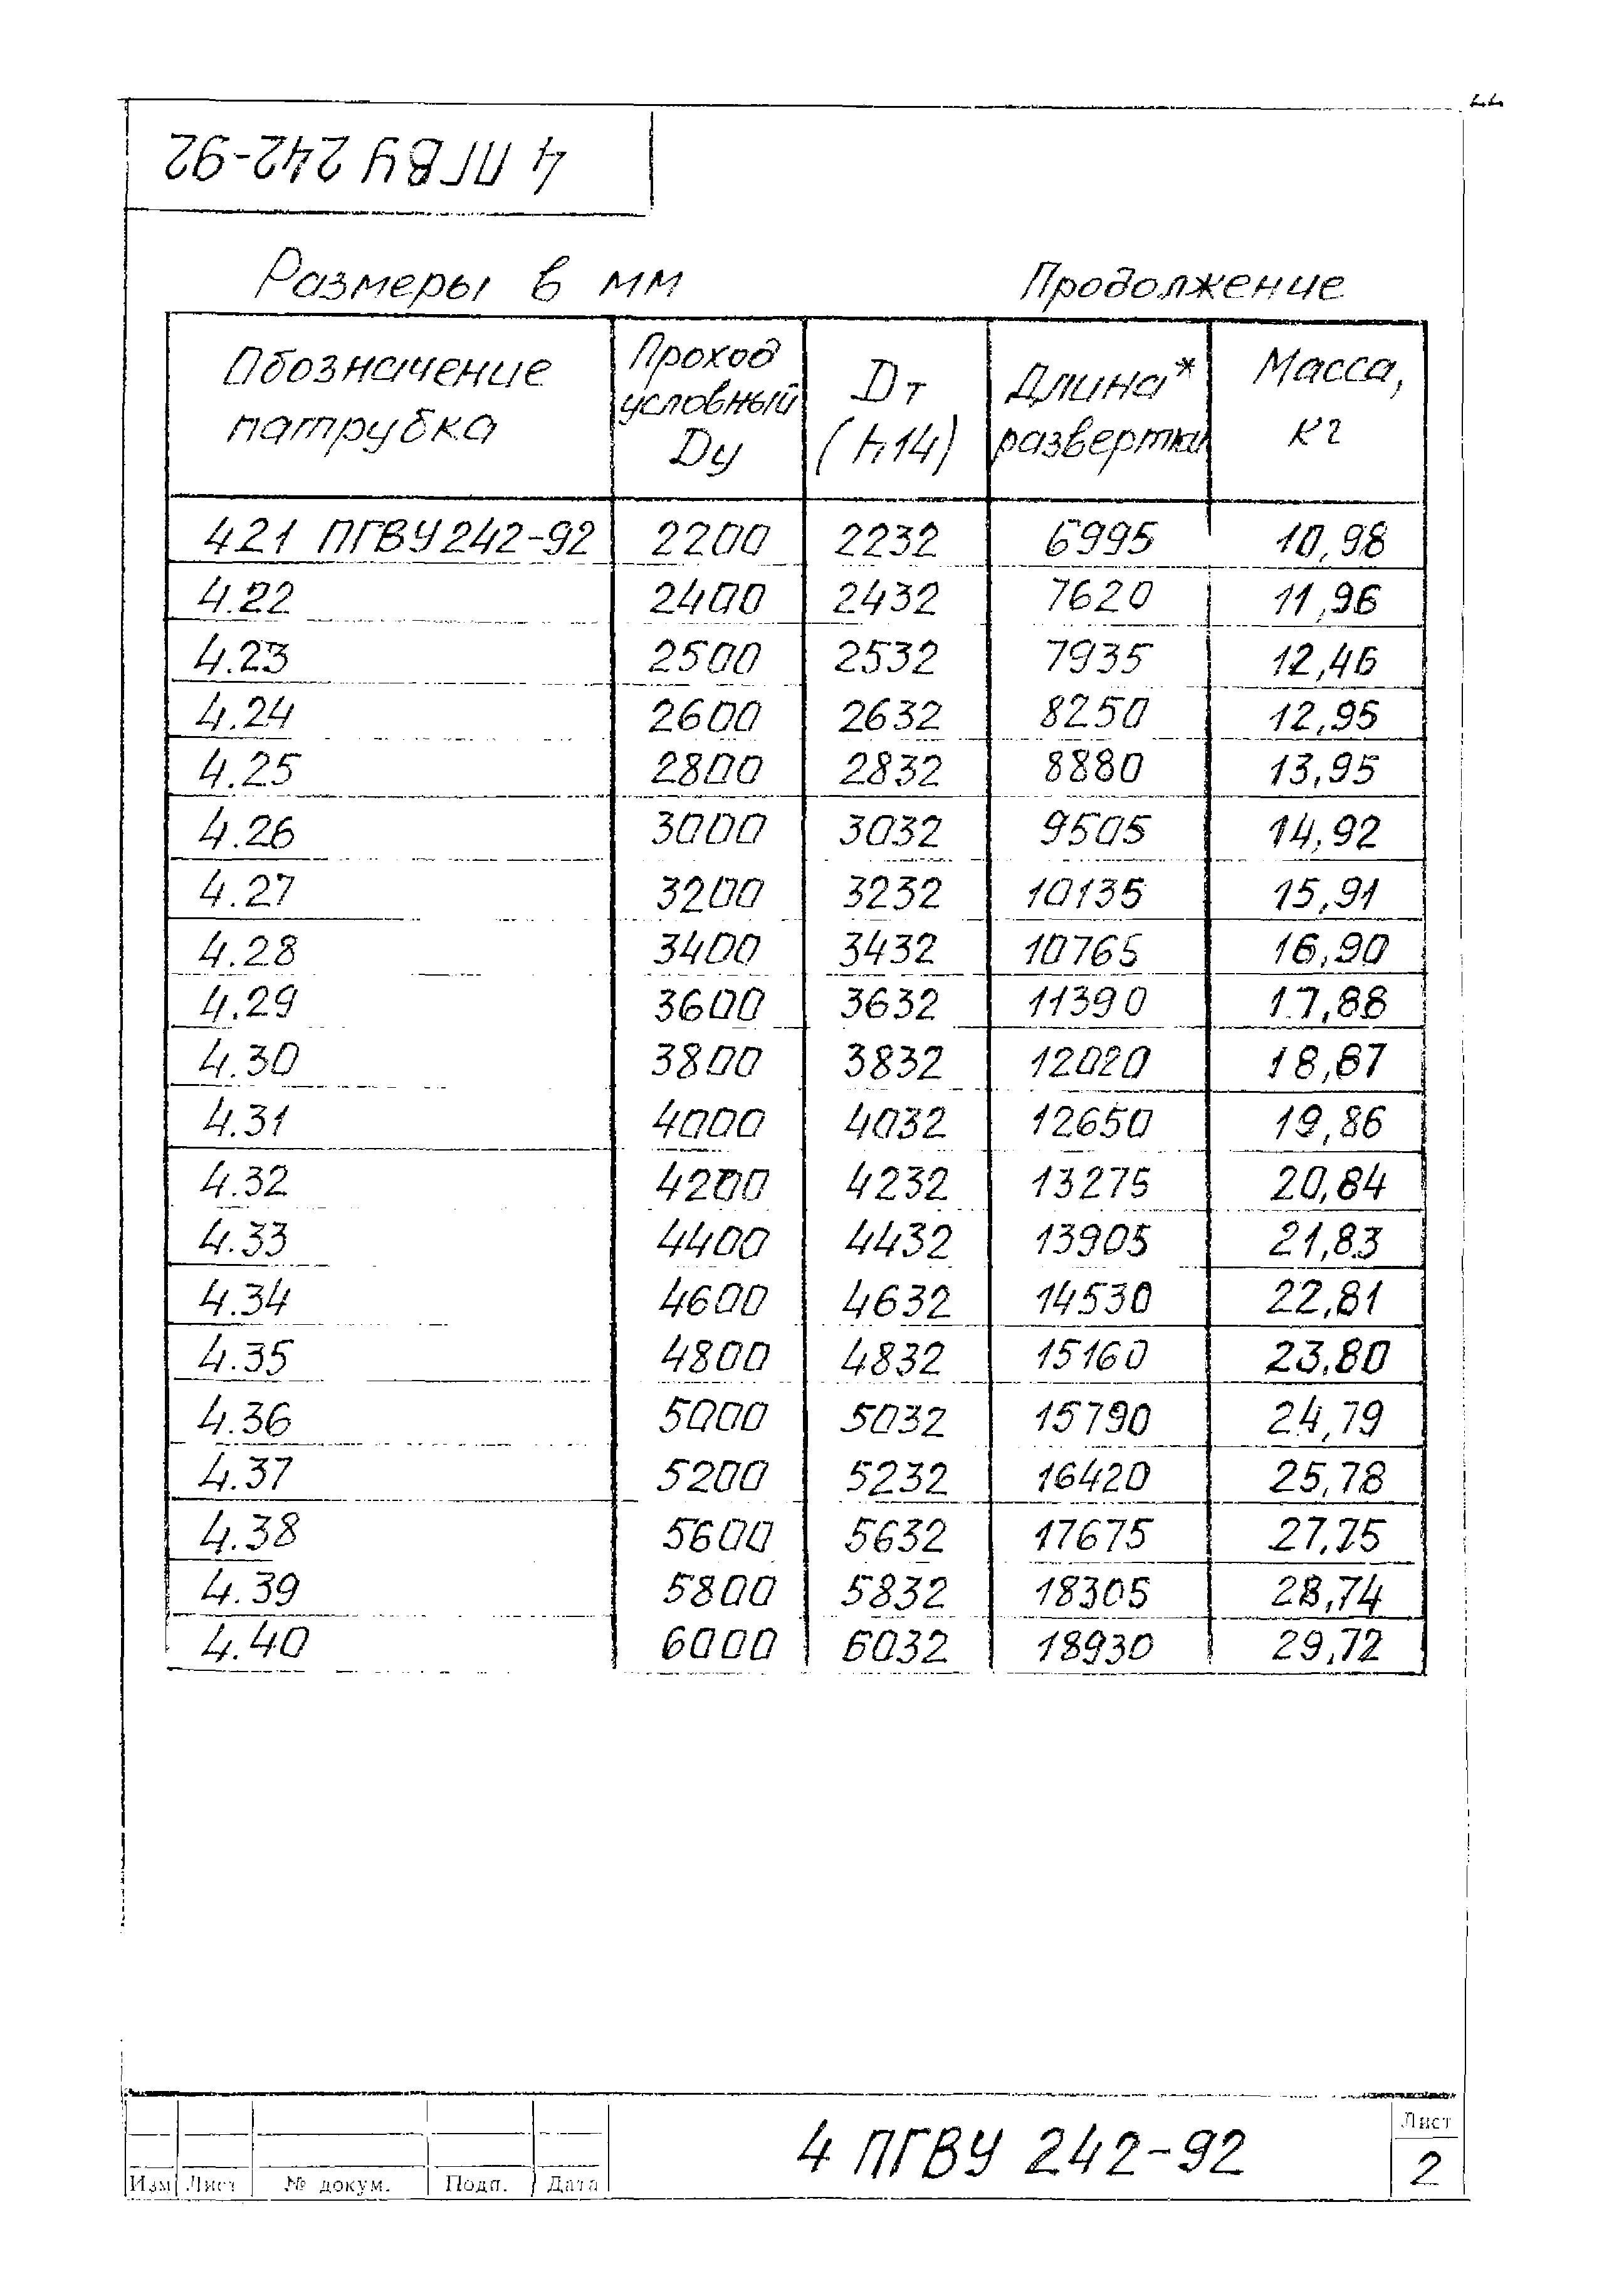 44
4 ПГВУ 242-92
Размеры в мм Продолжение
Обозначение патрубка Проход условный Dу Dт (h14) Длина* развертки Масса, кг
421 ПГВУ 242-92 2200 2232 6995 10,98
4.22 2400 2432 7620 11,96
4.23 2500 2532 7935 12,46
4.24 2600 2632 8250 12,95
4.25 2800 2832 8880 13,95
4.26 3000 3032 9505 14,92
4.27 3200 3232 10135 15,91
4.28 3400 3432 10765 16,90
4.29 3600 3632 11390 17,88
4.30 3800 3832 12020 18,87
4.31 4000 4032 12650 19,86
4.32 4200 4232 13275 20,84
4.33 4400 4432 13905 21,83
4.34 4600 4632 14530 22,81
4.35 4800 4832 15160 23,80
4.36 5000 5032 15790 24,79
4.37 5200 5232 16420 25,78
4.38 5600 5632 17675 27,75
4.39 5800 5832 18305 28,74
4.40 6000 6032 18930 29,72
Изм Лист № докум. Подп. Дата
4 ПГВУ 242-92
Лист
2